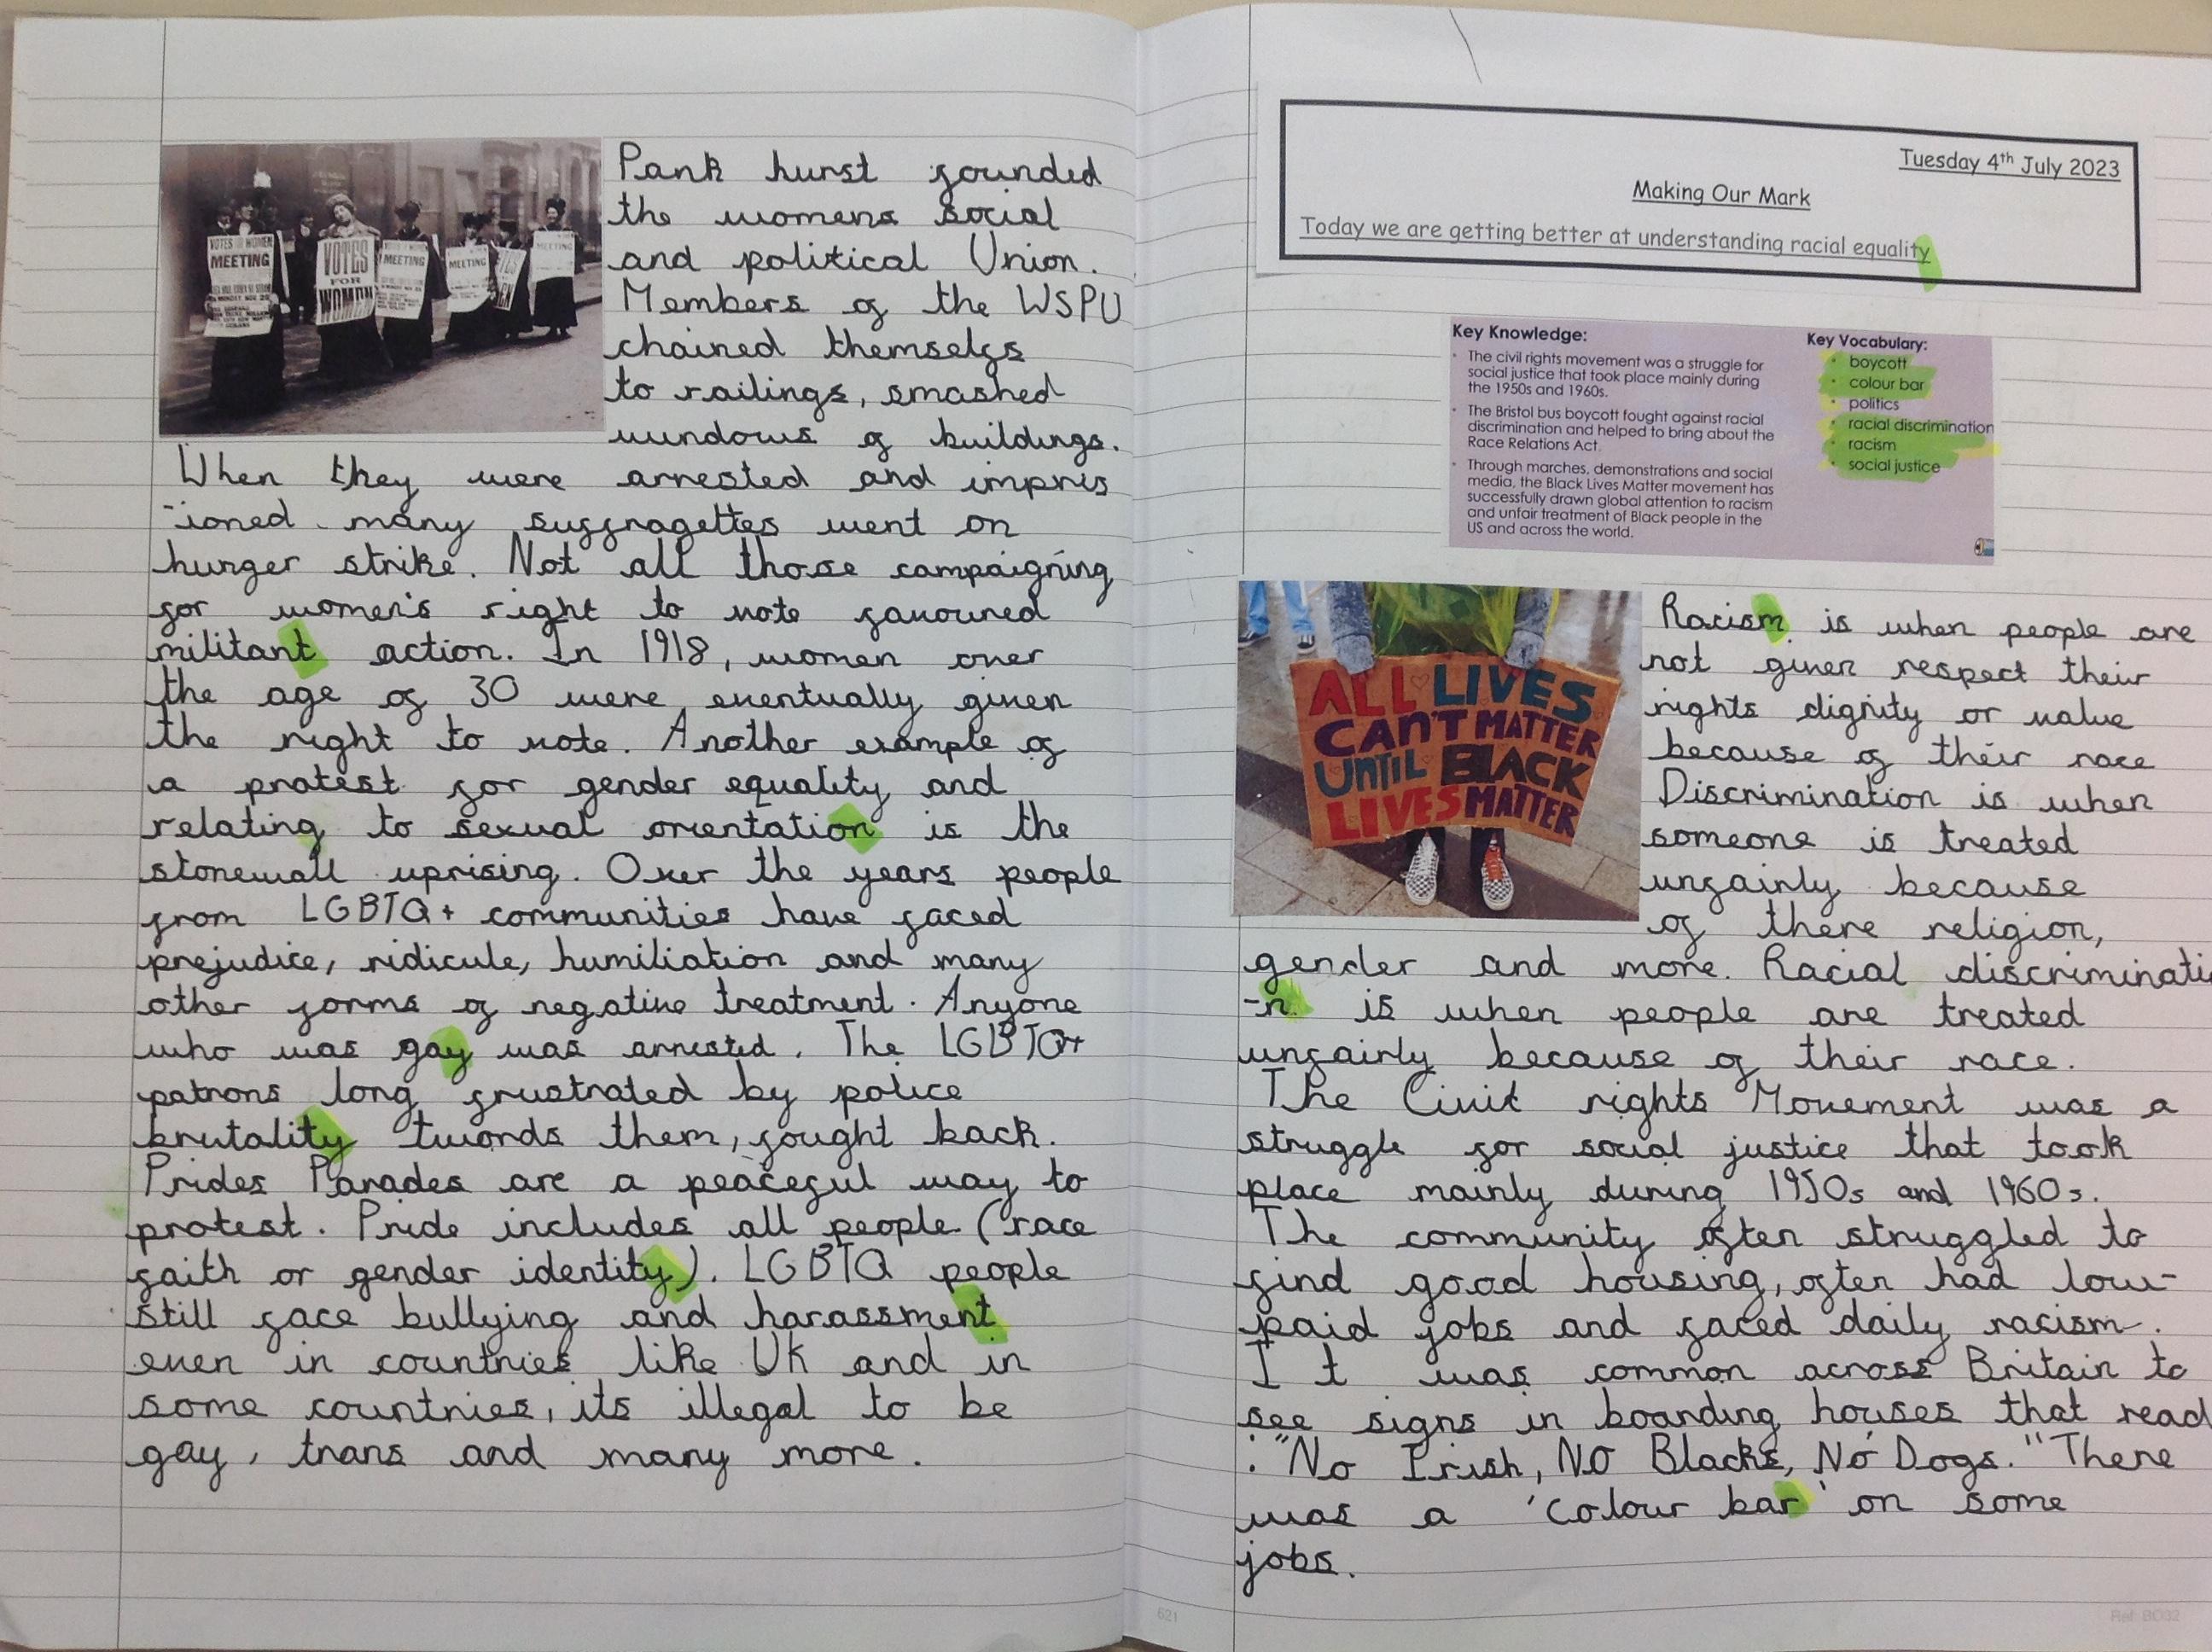 VOTES FOR WOMEN
MEETING
VOTES
FOR
WOMEN
MEETING
MEETING
MEETING
Pank hurst founded
the womens social
and political Union.
Members of the WSPU
chained themselfs
to railings, smashed
windows of buildings.
When they were arrested and impris
-ioned many suffragettes went on
hunger strike. Not all those campaigning
for women's right to vote favoured
militant action. In 1918, women over
the age of 30 were eventually given
the right to vote. Another example of
a protest for gender equality and
relating to sexual orientation is the
stonewall uprising. Over the years people
from LGBTQ+ communities have faced
prejudice, ridicule, humiliation and many
other forms of negative treatment. Anyone
who was gay was arrested. The LGBTQ+
patrons long frustrated by police
brutality twords them, fought back.
Prides Parades are a peaceful way to
protest. Pride includes all people (race
faith or gender identity). LGBTQ people
still face bullying and harassment
even in countries like UK and in
some countries, its illegal to be
gay, trans and many more.
621
Tuesday 4th July 2023
Making Our Mark
Today we are getting better at understanding racial equality
Key Knowledge:
• The civil rights movement was a struggle for
social justice that took place mainly during
the 1950s and 1960s.
• The Bristol bus boycott fought against racial
discrimination and helped to bring about the
Race Relations Act.
• Through marches, demonstrations and social
media, the Black Lives Matter movement has
successfully drawn global attention to racism
and unfair treatment of Black people in the
US and across the world.
Key Vocabulary:
• boycott
• colour bar
• politics
• racial discrimination
• racism
• social justice
ALL LIVES
CAN'T MATTER
UNTIL BLACK
LIVES MATTER
Racism is when people are
not given respect their
rights dignity or value
because of their race
Discrimination is when
someone is treated
unfairly because
of there religion,
gender and more. Racial discriminatio
-n is when people are treated
unfairly because of their race.
The Civil rights Movement was a
struggle for social justice that took
place mainly during 1950s and 1960s.
The community often struggled to
find good housing, often had low-
paid jobs and faced daily racism.
It was common across Britain to
see signs in boarding houses that read
:"No Irish, No Blacks, No Dogs." There
was a 'colour bar' on some
jobs.
Ref: BO32